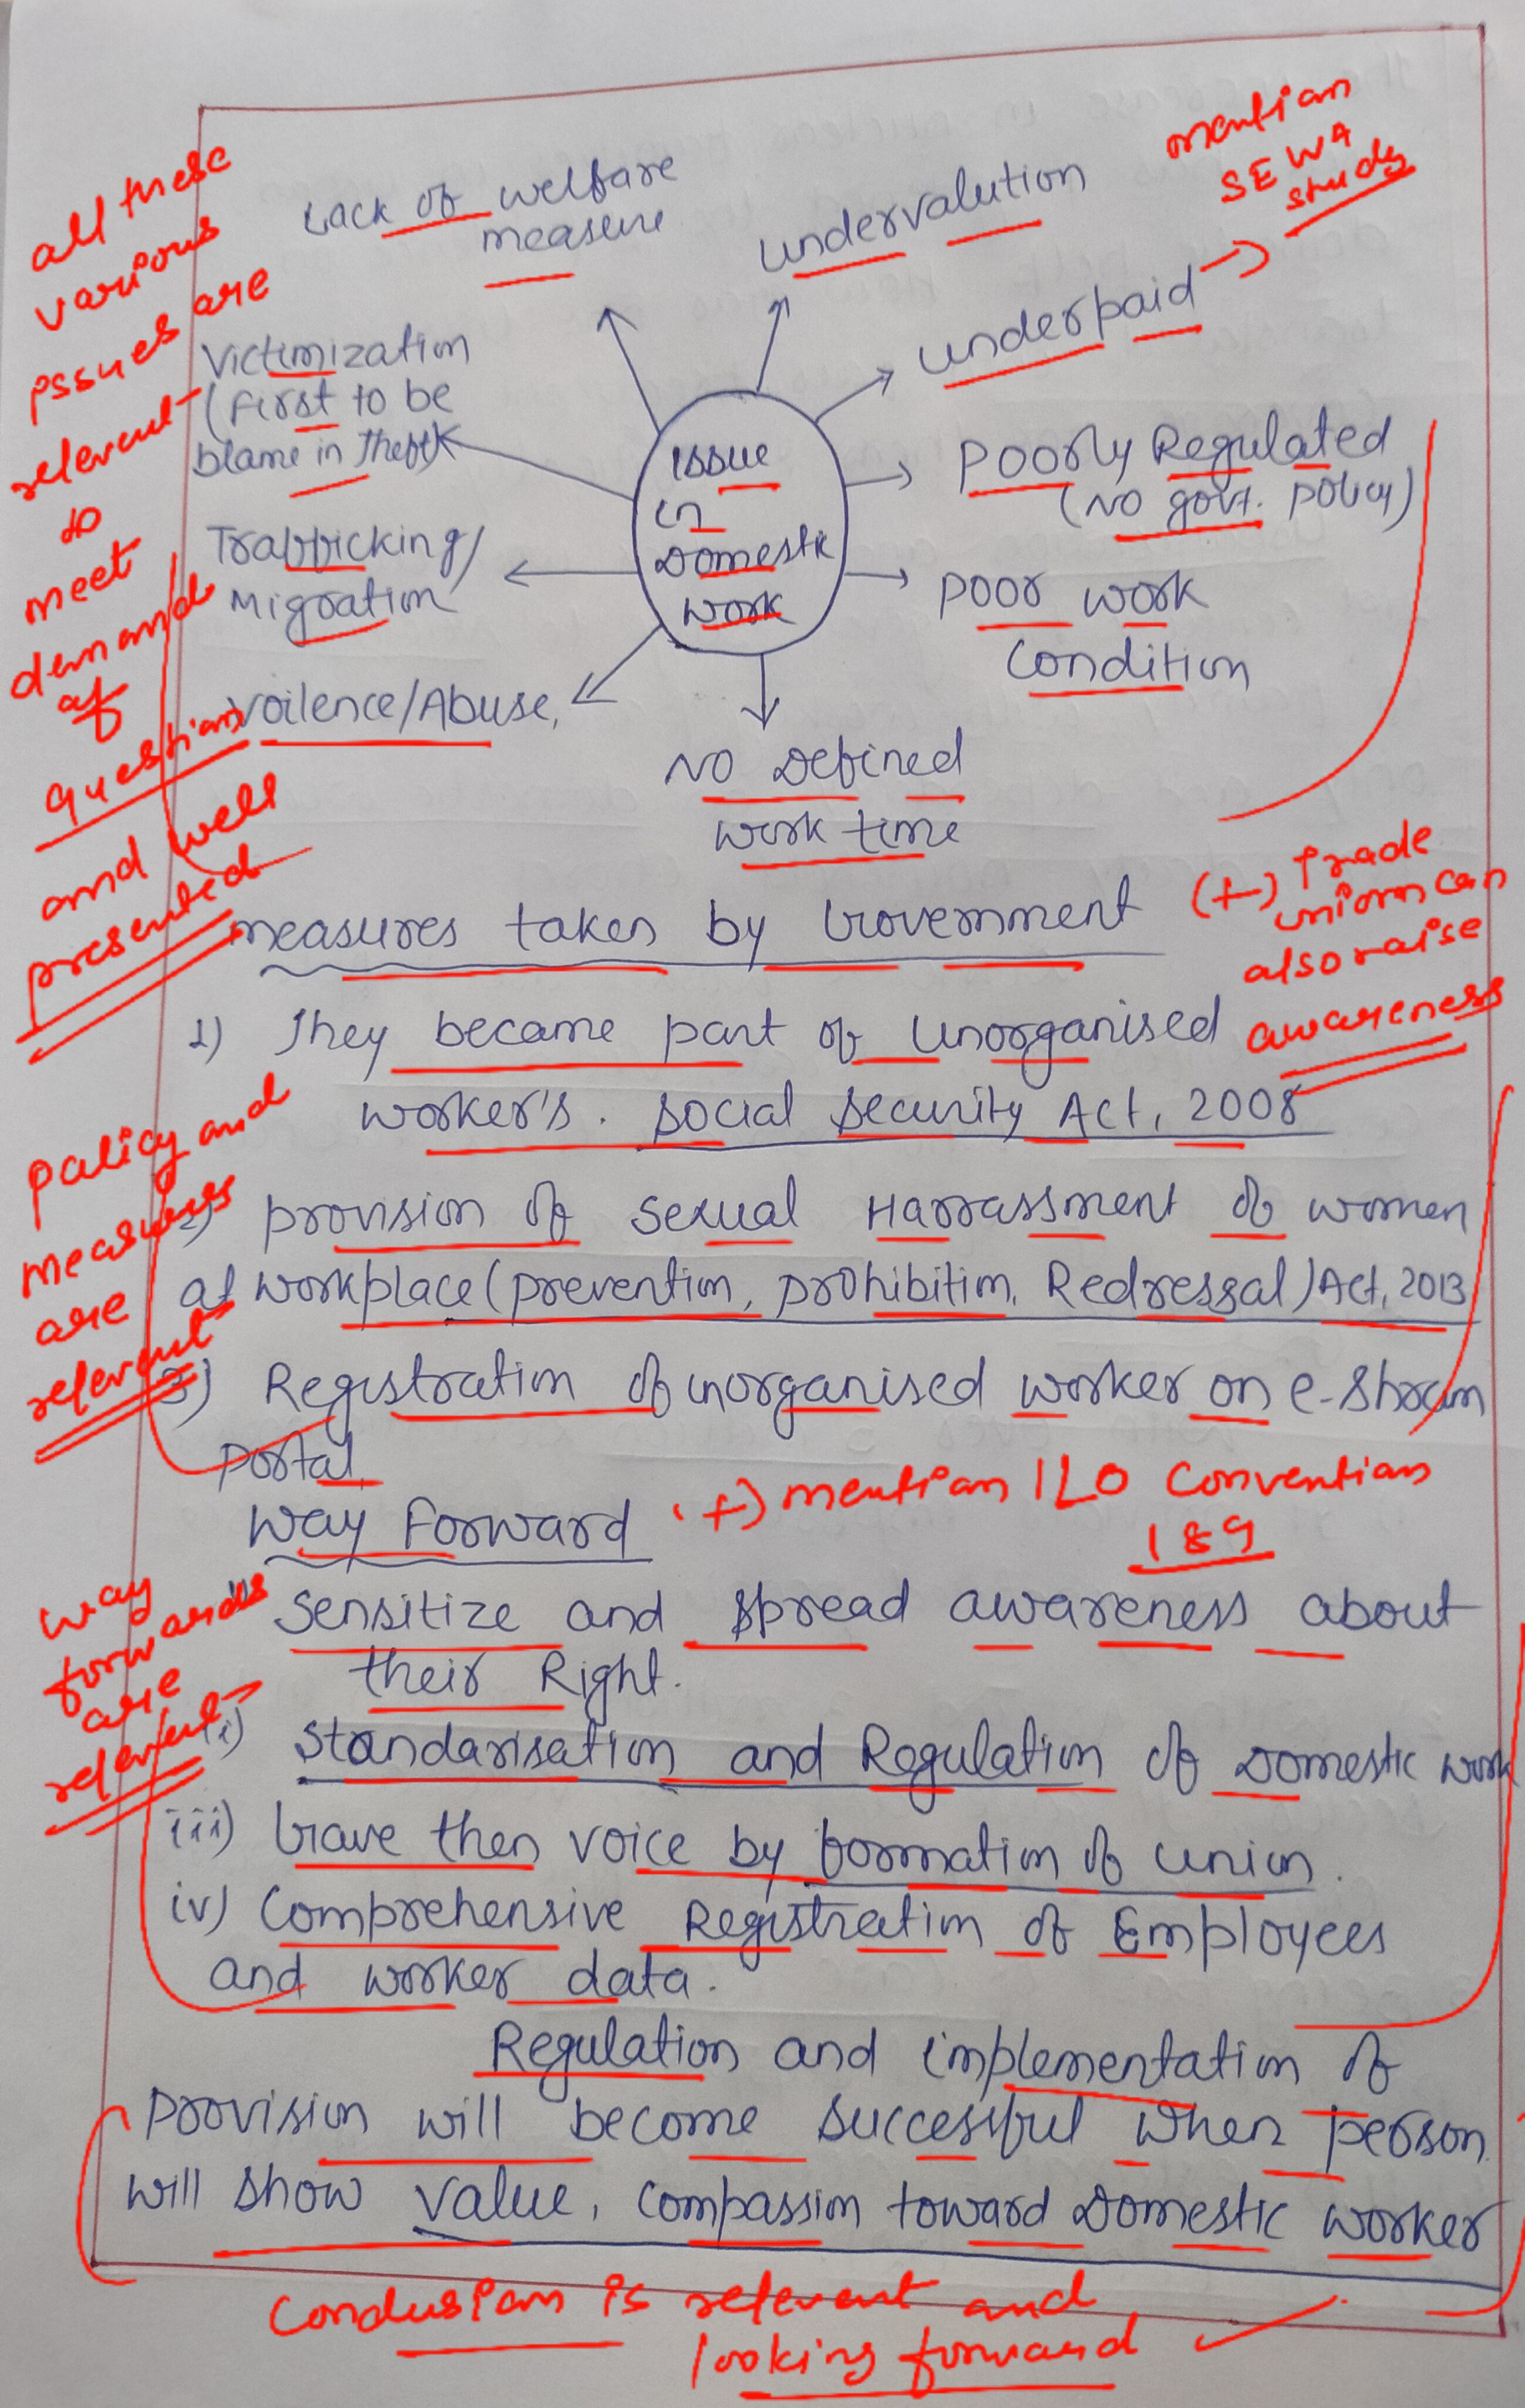 mention
SEWA
study
all these
various
issues are
relevant
to
meet
demand
of
question
and well
presented
Lack of welfare
measure
undervalution
underpaid
Victimization
(First to be
blame in theft
Poorly Regulated
(No govt. policy)
Issue
in
Domestic
Work
Trafficking/
Migration
Poor work
Condition
Voilence/Abuse,
No Defined
work time
measures taken by Government
(+) Trade
unions can
also raise
awareness
1) They became part of Unorganised
worker's. social security Act, 2008
policy and
measures
are
relevant
2) provision of Sexual Harrassment of women
at workplace (prevention, prohibition, Redressal) Act, 2013
3) Registration of unorganised worker on e-Shram
portal.
Way Forward
(+) mention ILO Convention
189
way
forwards
are
relevant
Sensitize and spread awareness about
their Right.
ii) Standarisation and Regulation of Domestic work
iii) Gave then voice by formation of union.
iv) Comprehensive Registration of Employees
and worker data.
Regulation and implementation of
provision will become successful when person
will show value, compassion toward Domestic worker
Conclusion is relevant and
looking forward